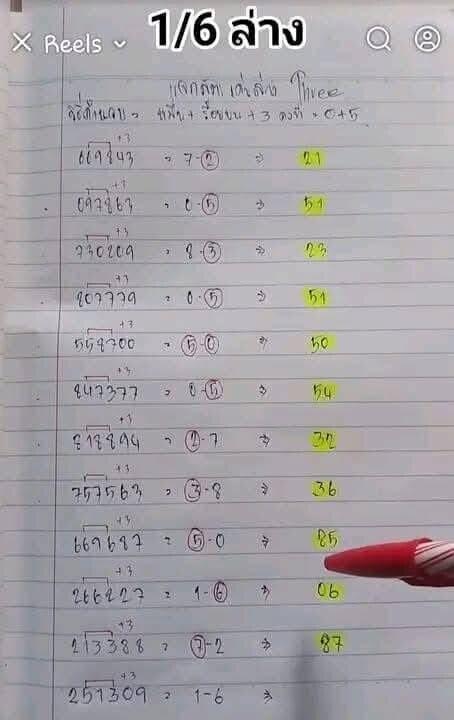 1/6 ล่าง
Reels
Three
วิธีคำนวณ = หมื่น + ร้อยบน + 3 คงที่ = 0+5
+3
669843 = 7-2 ⇒ 21
+3
097863 = 0-5 ⇒ 51
+3
730209 = 8-3 ⇒ 23
+3
807779 = 0-5 ⇒ 51
+3
558700 = 5-0 ⇒ 50
+3
847377 = 0-5 ⇒ 54
+3
818894 = 2-7 ⇒ 32
+3
757563 = 3-8 ⇒ 36
+3
669687 = 5-0 ⇒ 85
+3
266227 = 1-6 ⇒ 06
+3
213388 = 7-2 ⇒ 87
+3
251309 = 1-6 ⇒